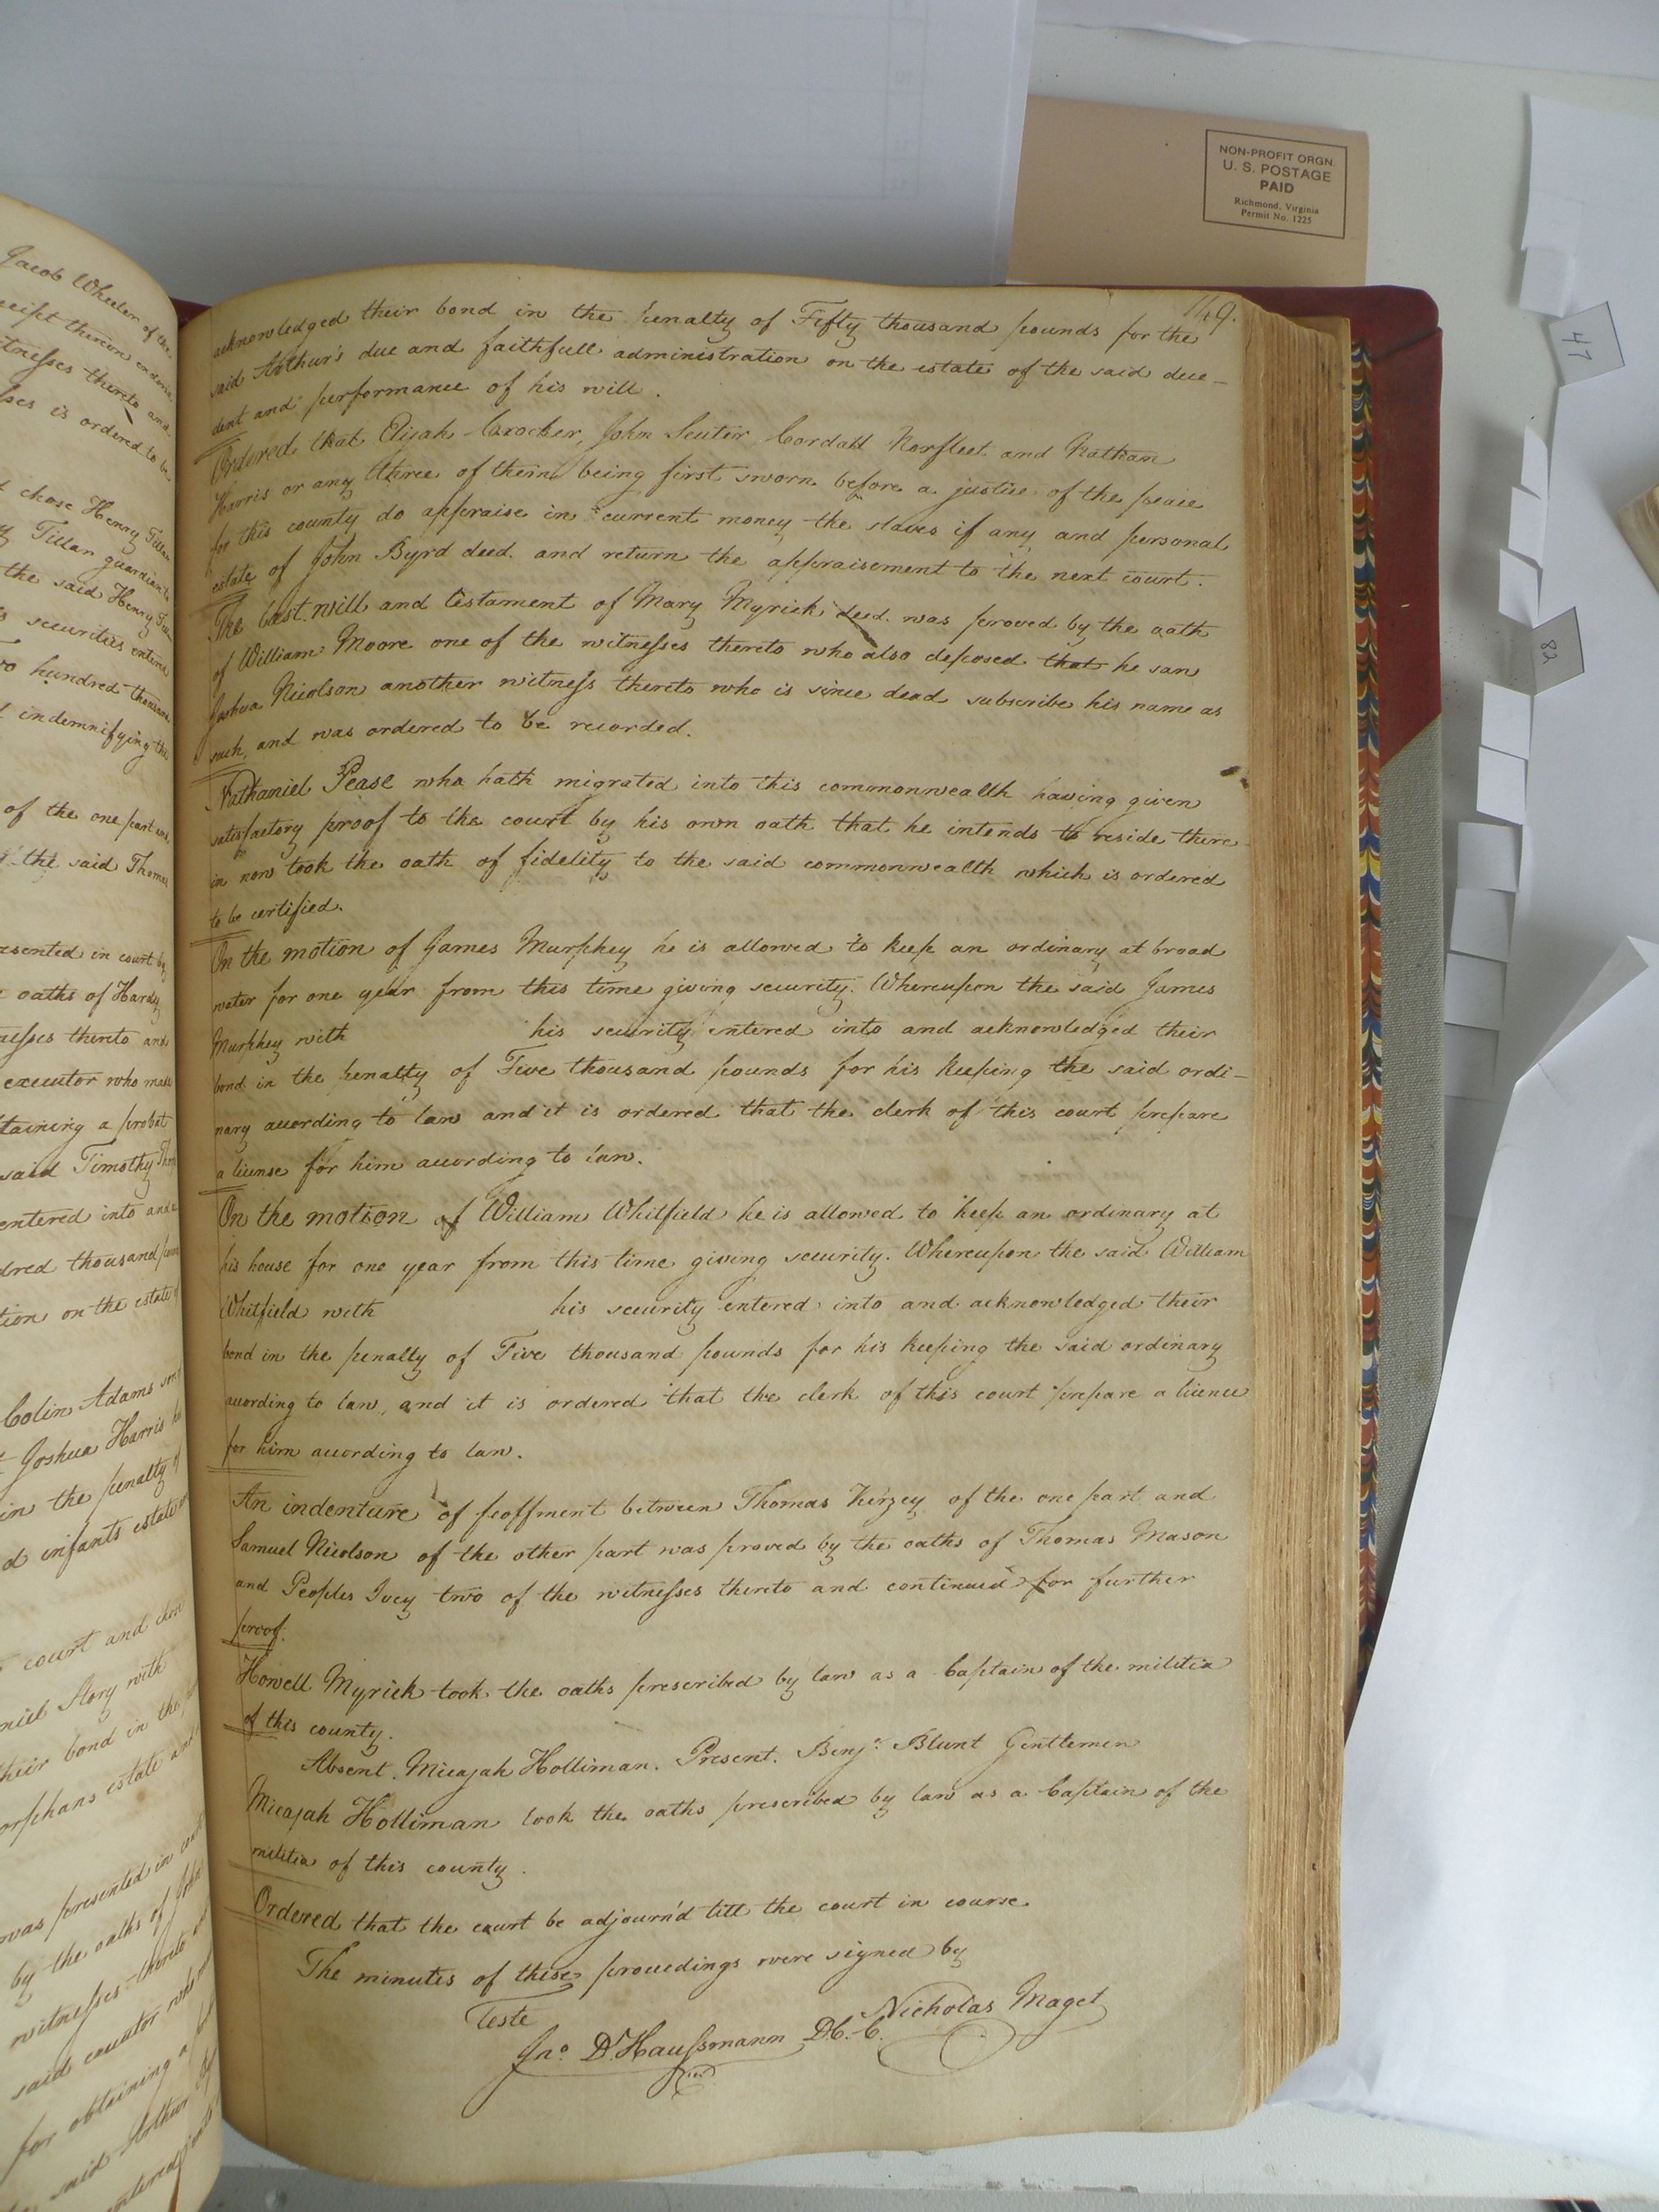 NON-PROFIT ORGN.
U. S. POSTAGE
PAID
Richmond, Virginia
Permit No. 1225
47
82
Jacob Wheeler of the
thereon endorsd
witnesses thereto and
is ordered to be
chose Henry Tillar
Tillar guardian to
the said Henry
securities entered
hundred thousand
indemnifying the
of the one part and
the said Thomas
presented in court by
oaths of Hardy
witnesses thereto and
executor who made
obtaining a probat
said Timothy Thorp
entered into and
hundred thousand
on the estate
Colin Adams
Joshua Harris
in the penalty of
infants estate
court and chose
Story with
their bond in the
orphans estate and
was presented in court
by the oaths of John
witnesses thereto
said executor who
for obtaining a
said Arthur
entered into
149.
acknowledged their bond in the penalty of Fifty thousand pounds for the
said Arthur's due and faithfull administration on the estate of the said dece-
dent and performance of his will.
Ordered that Elijah Crocker, John Suter, Cordall Norfleet and Nathan
Harris or any three of them being first sworn before a justice of the peace
for this county do appraise in current money the slaves if any and personal
estate of John Byrd decd. and return the appraisement to the next court.
The last will and testament of Mary Myrick decd. was proved by the oath
of William Moore one of the witnesses thereto who also deposed that he saw
Joshua Nicolson another witness thereto who is since dead subscribe his name as
such, and was ordered to be recorded.
Nathaniel Pease who hath migrated into this commonwealth having given
satisfactory proof to the court by his own oath that he intends to reside there-
in now took the oath of fidelity to the said commonwealth which is ordered
to be certified.
On the motion of James Murphey he is allowed to keep an ordinary at broad
water for one year from this time giving security. Whereupon the said James
Murphey with his security entered into and acknowledged their
bond in the penalty of Five thousand pounds for his keeping the said ordi-
nary according to law and it is ordered that the clerk of this court prepare
a license for him according to law.
On the motion of William Whitfield he is allowed to keep an ordinary at
his house for one year from this time giving security. Whereupon the said William
Whitfield with his security entered into and acknowledged their
bond in the penalty of Five thousand pounds for his keeping the said ordinary
according to law, and it is ordered that the clerk of this court prepare a licence
for him according to law.
An indenture of feoffment between Thomas Kerzey of the one part and
Samuel Nicolson of the other part was proved by the oaths of Thomas Mason
and Peoples Ivey two of the witnesses thereto and continued for further
proof.
Howell Myrick took the oaths prescribed by law as a Captain of the militia
of this county.
Absent. Micajah Holliman. Present. Benja. Blunt Gentlemen
Micajah Holliman took the oaths prescribed by law as a Captain of the
militia of this county.
Ordered that the court be adjourn'd till the court in course.
The minutes of these proceedings were signed by
Nicholas Maget
Teste
Jno. D. Haussmann D.C.C.